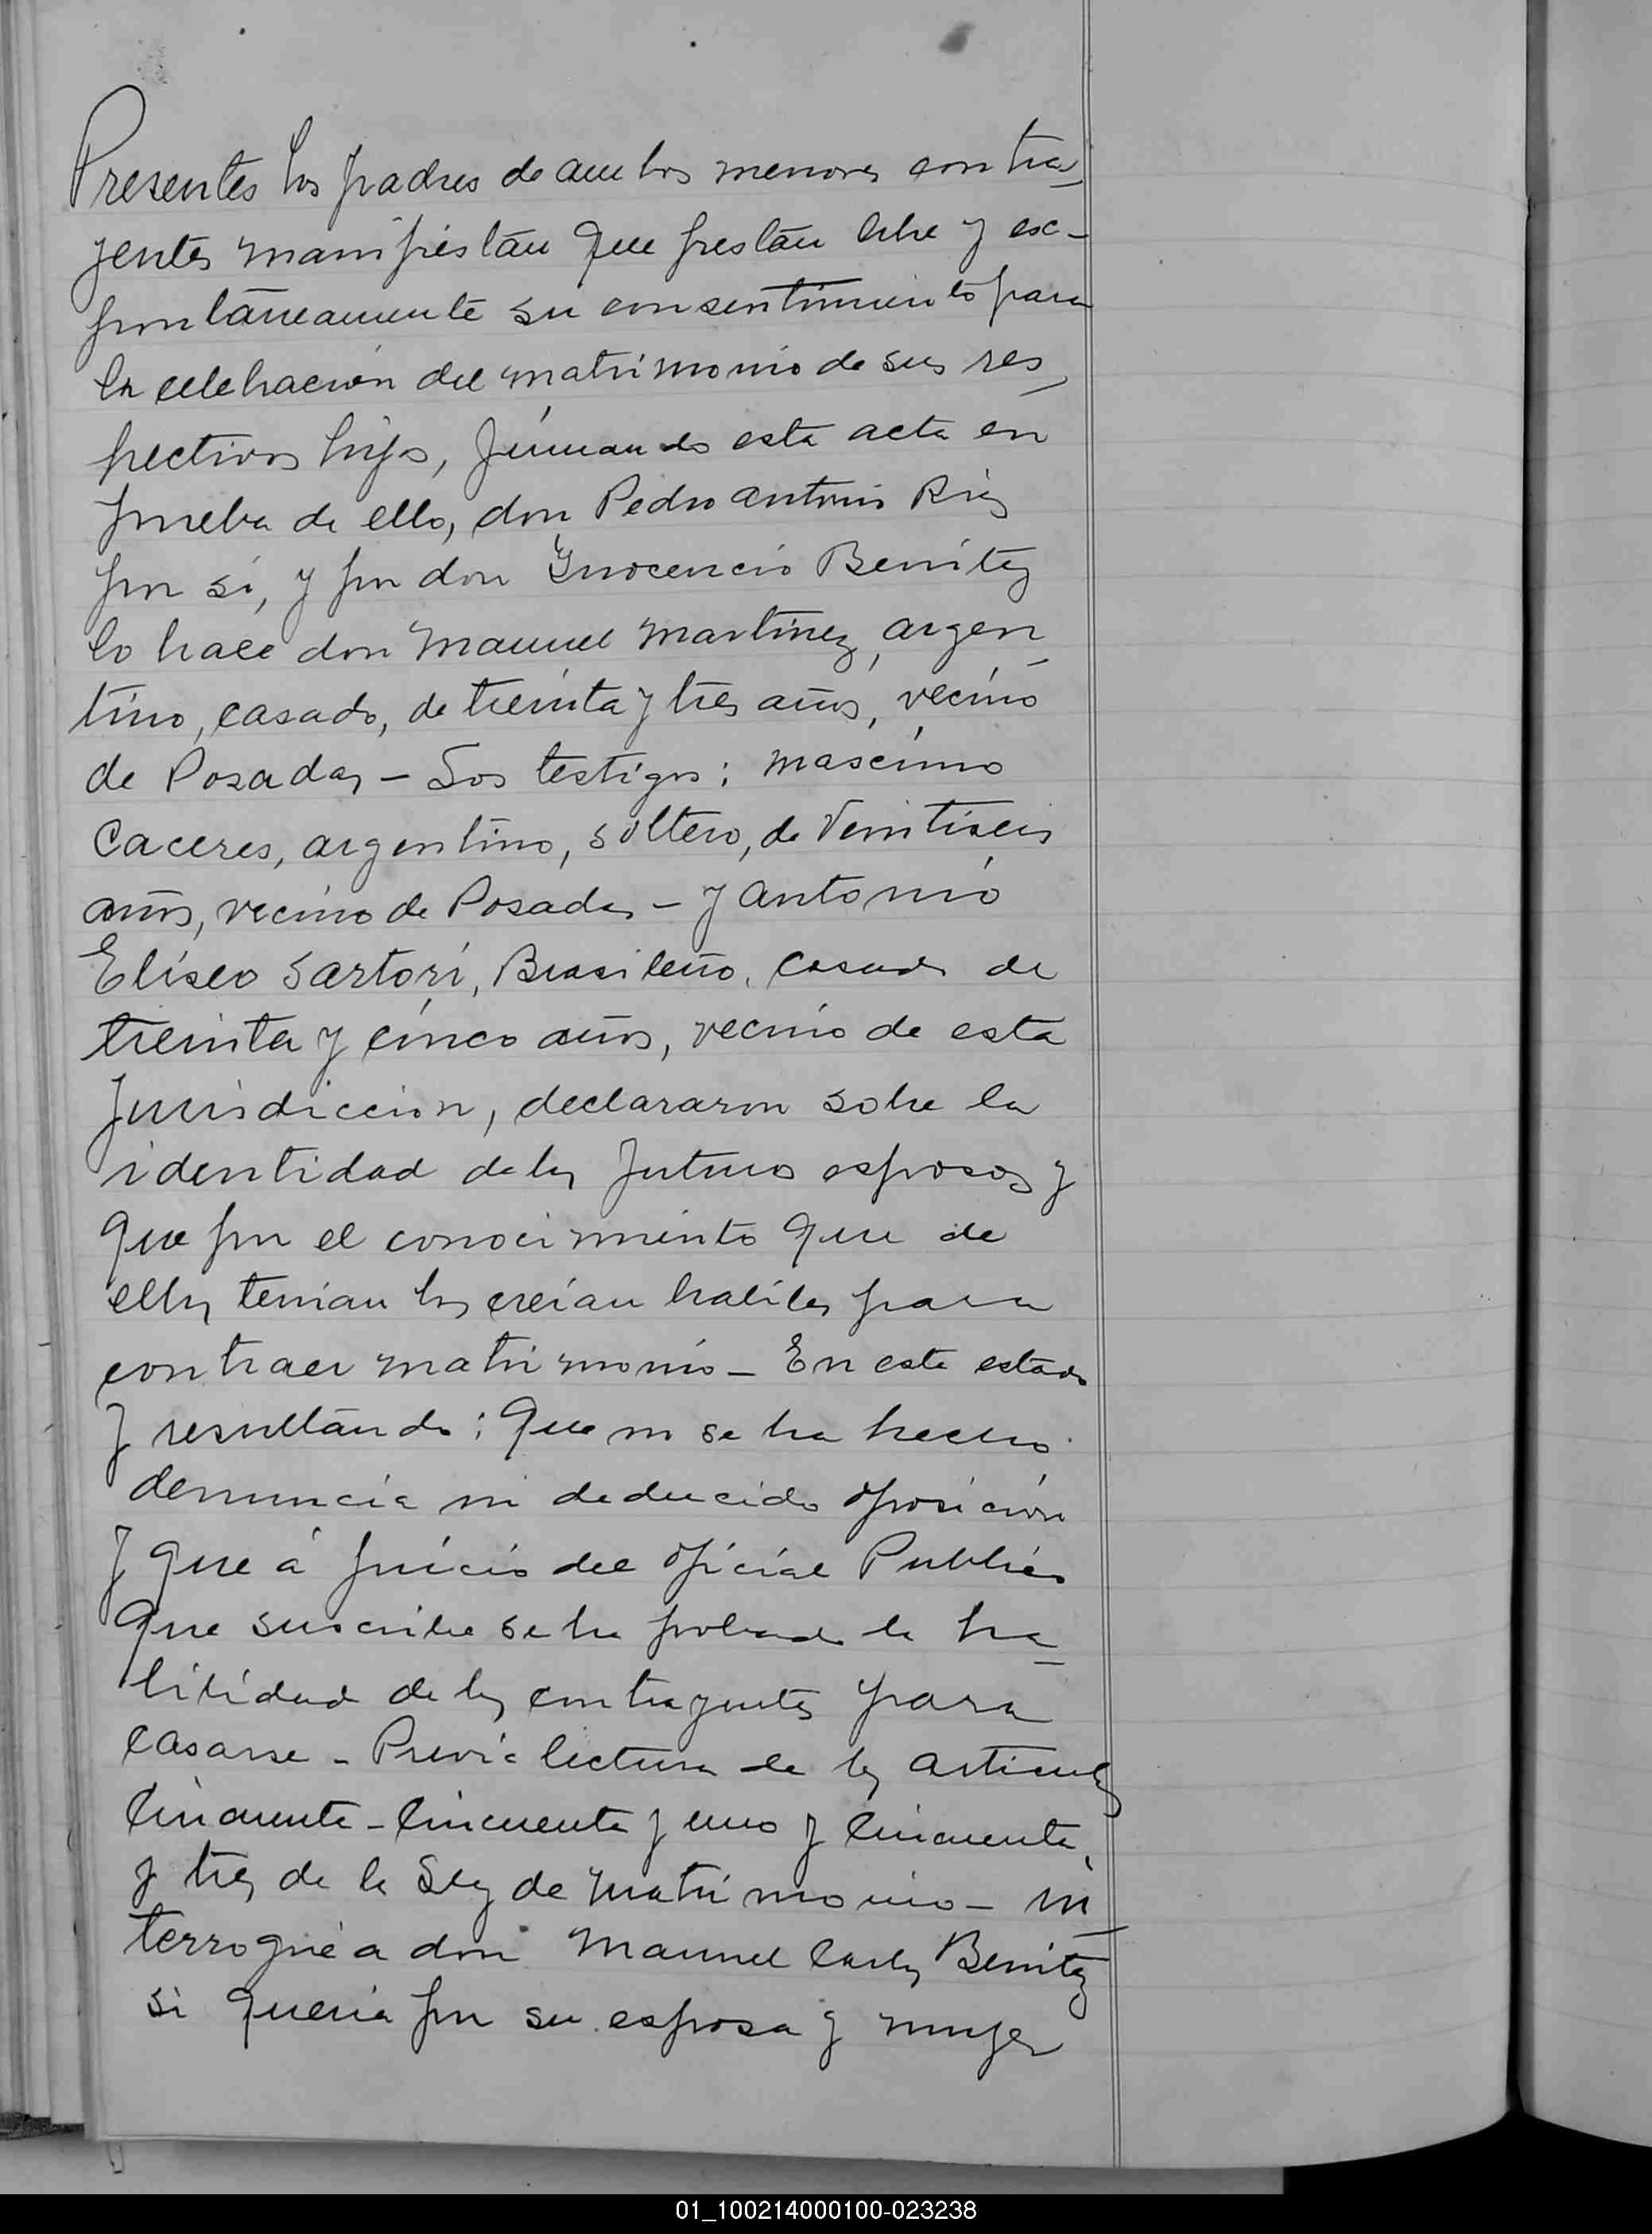 Presentes los padres de ambos menores contra-
yentes manifiestan que prestan libre y esc-
pontaneamente su consentimiento para
la celebracion del matrimonio de sus res-
pectivos hijos, firmando esta acta en
prueba de ello, don Pedro antonio
por sí, y por don Ynocencio Benitez
lo hace don Manuel Martinez, argen-
tino, casado, de treinta y tres años, vecino
de Posadas - Los testigos: mascimo
Caceres, argentino, soltero, de Veintiseis
años, vecino de Posadas - y antonio
Eliseo Sartori, Brasileño, casado de
treinta y cinco años, vecino de esta
Jurisdiccion, declararon sobre la
identidad de los futuros esposos y
que por el conocimiento que de
ellos tenian los creian habiles para
contraer matrimonio - En este estado
y resultando: que no se ha hecho
denuncia ni deducido oposición
y que á juicio del oficial Publico
que suscribe se ha probado la ha-
bilidad de los contrayentes para
casarse - Previa lectura de los articulos
Cincuenta - Cincuenta y uno y Cincuenta
y tres de la Ley de Matrimonio - in-
terrogué a don Manuel Carlos Benitez
si queria por su esposa y mujer
01_100214000100-023238